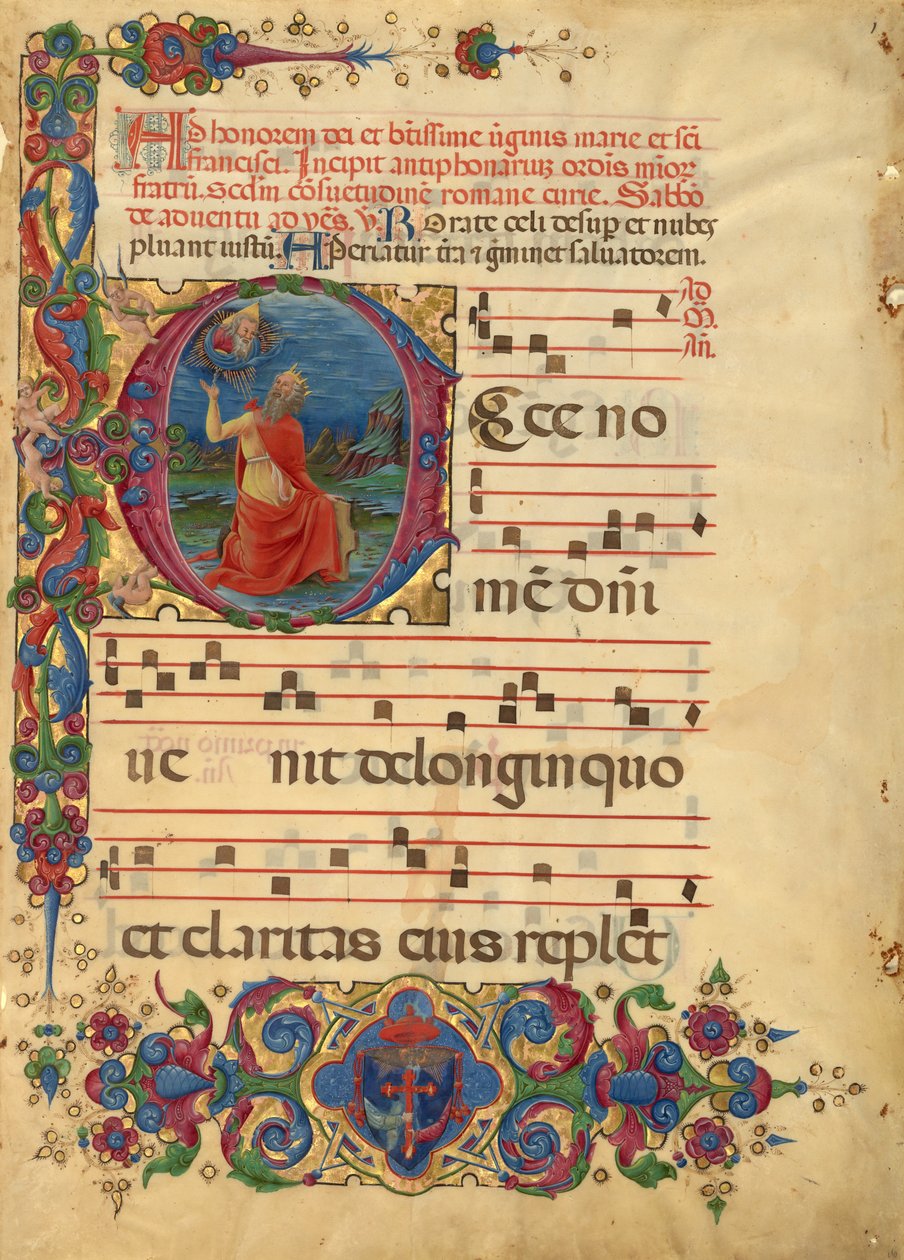 Ad honorem dei et btīssime ūginis marie et scī
francisci. Incipit antiphonariuz ordīs mīor
fratrū. Scdm cōsuetudinē romane curie. Sabbō
de aduentu ad ves̄. v̄. Rorate celi desup et nubes
pluant iustū. Aperiatur tr̄a ⁊ ḡminet saluatorem.
Ad
M̄.
An̄.
Ecce no
mē dn̄i
ue nit de longinquo
et claritas eius replet